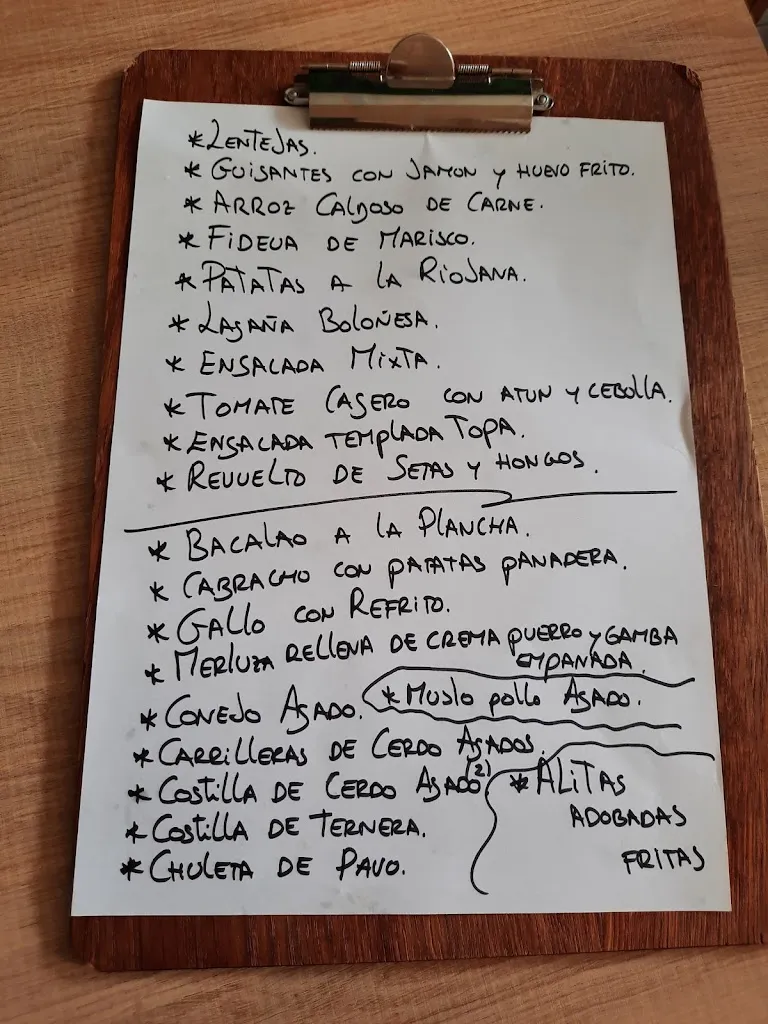 * LENTEJAS.
* GUISANTES CON JAMON Y HUEVO FRITO.
* ARROZ CALDOSO DE CARNE.
* FIDEUA DE MARISCO.
* PATATAS A LA RIOJANA.
* LASAÑA BOLOÑESA.
* ENSALADA MIXTA.
* TOMATE CASERO CON ATUN Y CEBOLLA.
* ENSALADA TEMPLADA TOPA.
* REVUELTO DE SETAS Y HONGOS.
* BACALAO A LA PLANCHA.
* CABRACHO CON PATATAS PANADERA.
* GALLO CON REFRITO.
* MERLUZA RELLENA DE CREMA PUERRO Y GAMBA
EMPANADA.
* CONEJO ASADO. * MUSLO POLLO ASADO.
* CARRILLERAS DE CERDO ASADOS.
* COSTILLA DE CERDO ASADO (2) * ALITAS
ADOBADAS
* COSTILLA DE TERNERA.
FRITAS
* CHULETA DE PAVO.